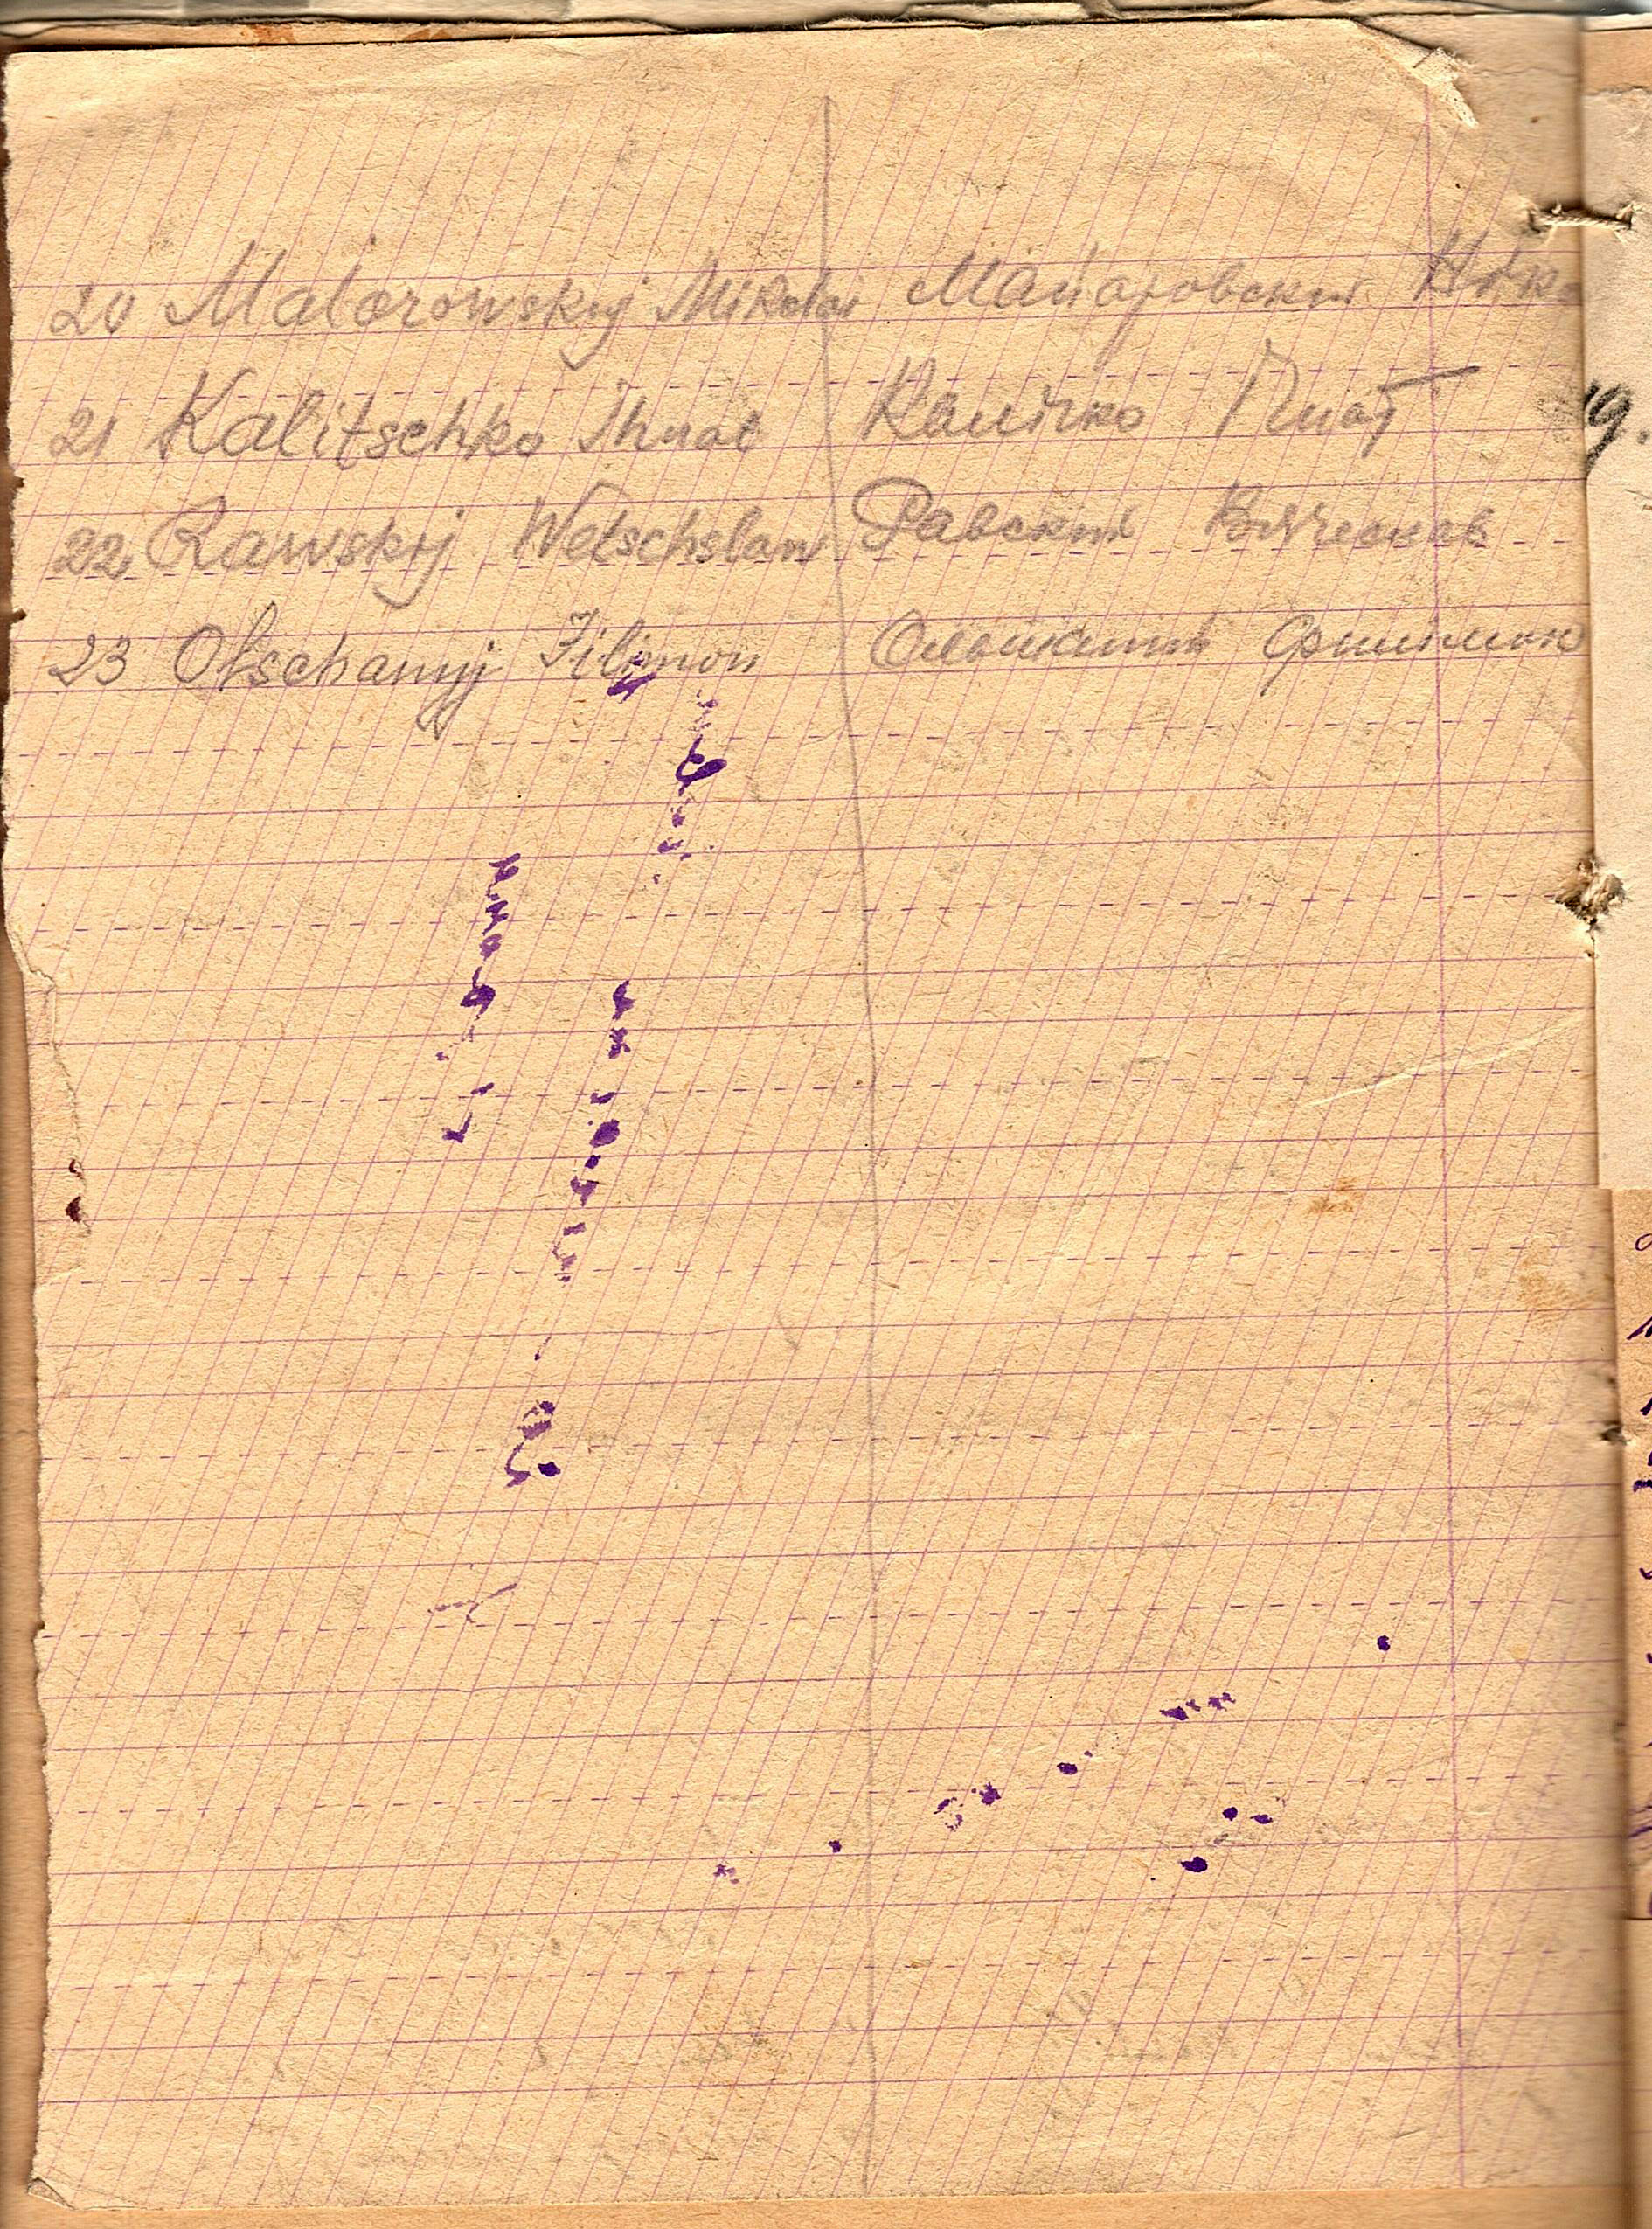 20 Maiorowskyj Mikolai Майоровский Ніко
21 Kalitschko Ihnat Калічко Гнат
22 Rawskyj Wetschslaw Равский Вячеслав
23 Olschanyj Filimon Ольшаний Филимон
19.